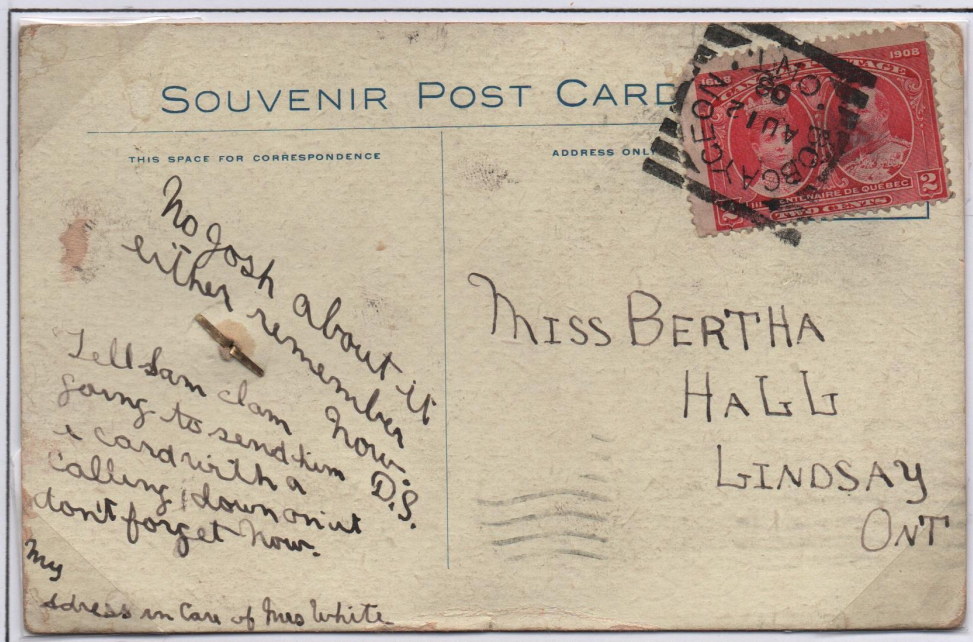 SOUVENIR POST CARD
THIS SPACE FOR CORRESPONDENCE
ADDRESS ONLY
1608 1908
CANADA POSTAGE
IIIe CENTENAIRE DE QUEBEC
2 TWO CENTS 2
BOBCAYGEON
AU 12
08
ONT
No Josh about it
either remember
now.
D.S.
Tell Sam clam
going to send him
a card with a
calling down on it
don't forget now.
My
adress in Care of Mrs White
MISS BERTHA
HALL
LINDSAY
ONT